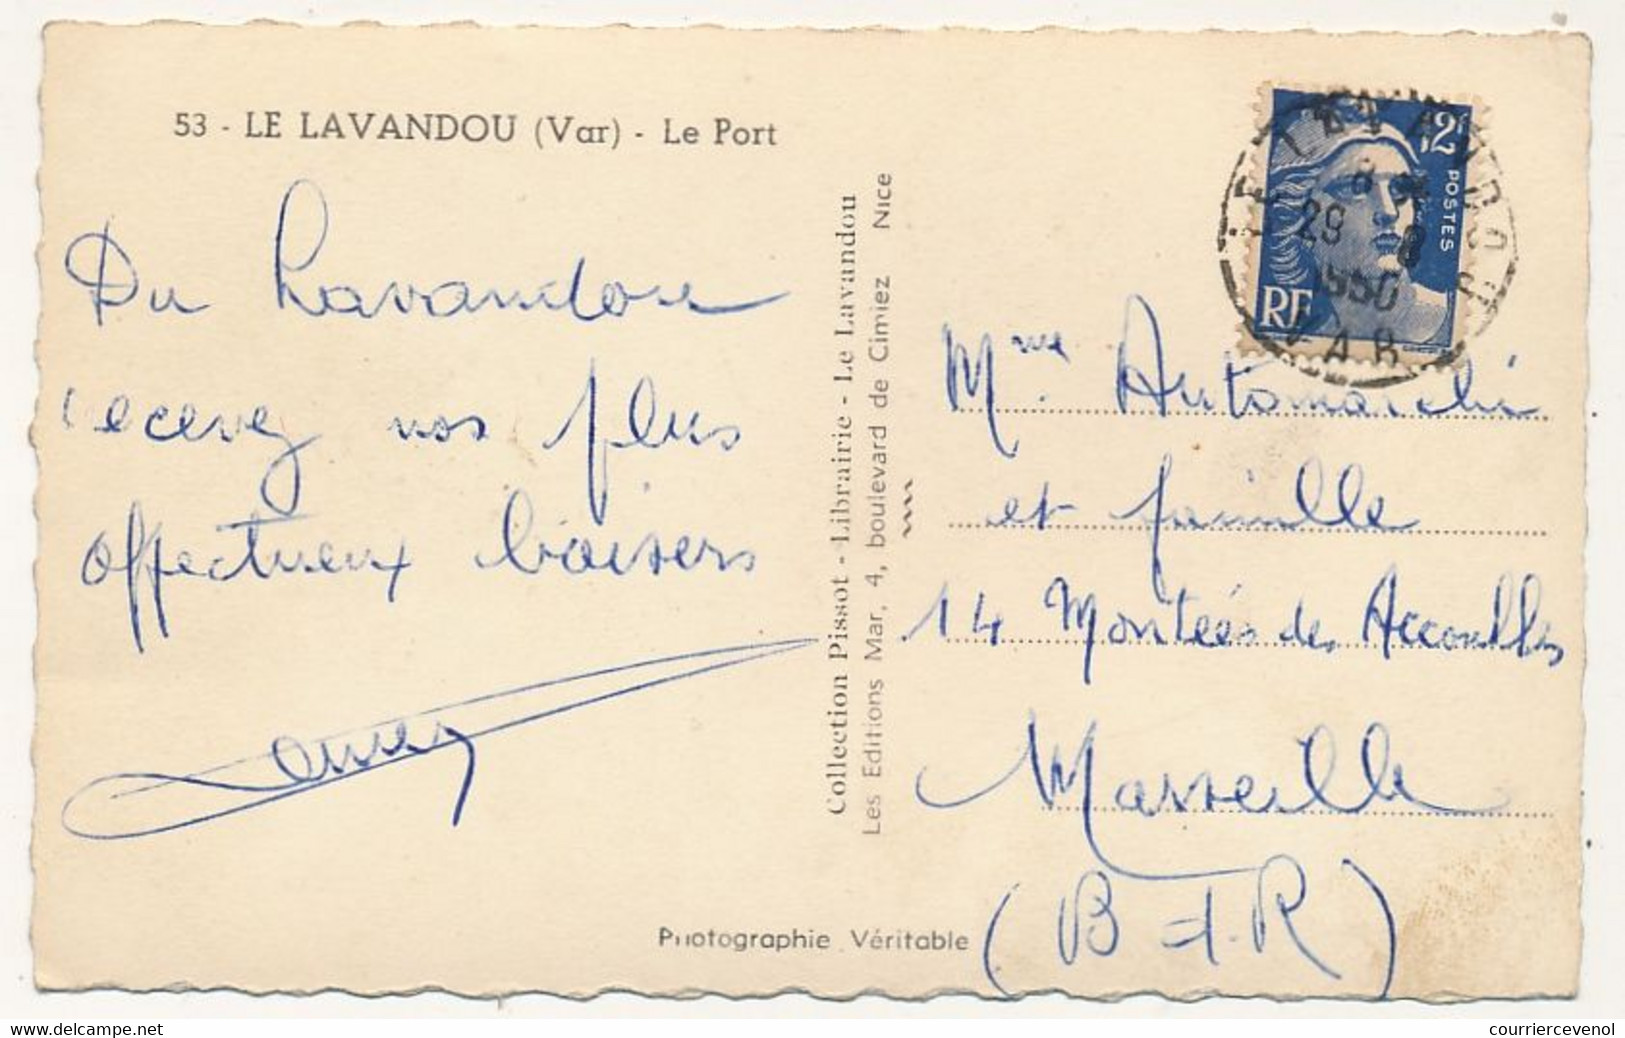 53 - LE LAVANDOU (Var) - Le Port
Du Lavandou
recevez nos plus
affectueux baisers
Collection Pissot - Librairie - Le Lavandou
Les Editions Mar, 4, boulevard de Cimiez Nice
Photographie Véritable
2F
POSTES
RF
LE LAVANDOU
8
29 8
1950
VAR
Mme Automarchi
et famille
14 Montées des Accoules
Marseille
(B d. R)
courriercevenol